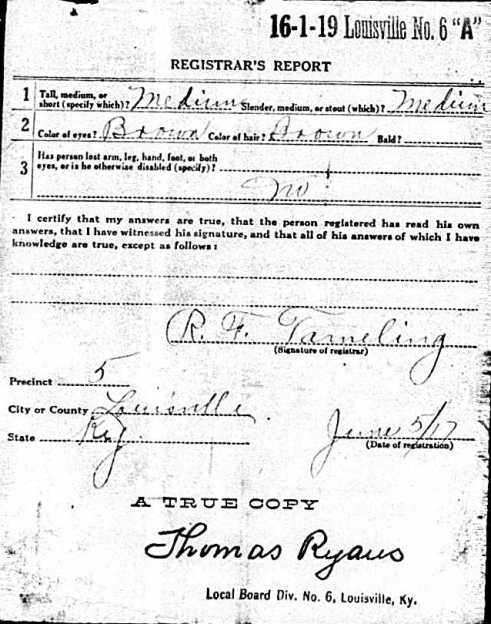 16-1-19 Louisville No. 6 "A"
REGISTRAR'S REPORT
1 Tall, medium, or short (specify which)? Medium Slender, medium, or stout (which)? Medium
2 Color of eyes? Brown Color of hair? Brown Bald?
3 Has person lost arm, leg, hand, foot, or both
eyes, or is he otherwise disabled (specify)?
No
I certify that my answers are true, that the person registered has read his own
answers, that I have witnessed his signature, and that all of his answers of which I have
knowledge are true, except as follows:
R. F. Tameling
(Signature of registrar)
Precinct 5
City or County Louisville
State Ky. June 5/17
(Date of registration)
A TRUE COPY
Thomas Ryans
Local Board Div. No. 6, Louisville, Ky.